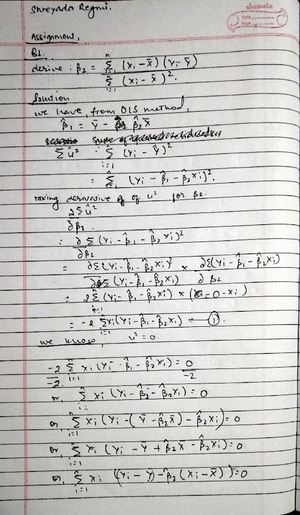 Shreyada Regmi.
Assignment,
Q1.
derive : β̂₂ = Σⁿᵢ₌₁ (xᵢ - x̄) (yᵢ - ȳ) / Σⁿᵢ₌₁ (xᵢ - x̄)².
Solution
we have, from OLS method,
β̂₁ = ȳ - β̂₂x̄
Σû² = Σⁿᵢ₌₁ (yᵢ - ŷ)²
= Σⁿᵢ₌₁ (yᵢ - β̂₁ - β̂₂xᵢ)².
taking derivative of of u² for β₂.
∂Σû² / ∂β₂
= ∂Σ(yᵢ - β̂₁ - β̂₂xᵢ)² / ∂β₂
= ∂Σ(yᵢ - β̂₁ - β̂₂xᵢ)² / ∂Σ(yᵢ - β̂₁ - β̂₂xᵢ) × ∂Σ(yᵢ - β̂₁ - β̂₂xᵢ) / ∂β₂
= 2Σⁿᵢ₌₁ (yᵢ - β̂₁ - β̂₂xᵢ) × (0 - 0 - xᵢ)
= -2 Σⁿᵢ₌₁ xᵢ(yᵢ - β̂₁ - β̂₂xᵢ) — ①
we know, u² = 0
-2/-2 Σⁿᵢ₌₁ xᵢ (yᵢ - β̂₁ - β̂₂xᵢ) = 0/-2
or, Σⁿᵢ₌₁ xᵢ (yᵢ - β̂₁ - β̂₂xᵢ) = 0
or, Σⁿᵢ₌₁ xᵢ (yᵢ - (ȳ - β̂₂x̄) - β̂₂xᵢ) = 0
or, Σⁿᵢ₌₁ xᵢ (yᵢ - ȳ + β̂₂x̄ - β̂₂xᵢ) = 0
or, Σⁿᵢ₌₁ xᵢ ((yᵢ - ȳ) - β̂₂(xᵢ - x̄)) = 0